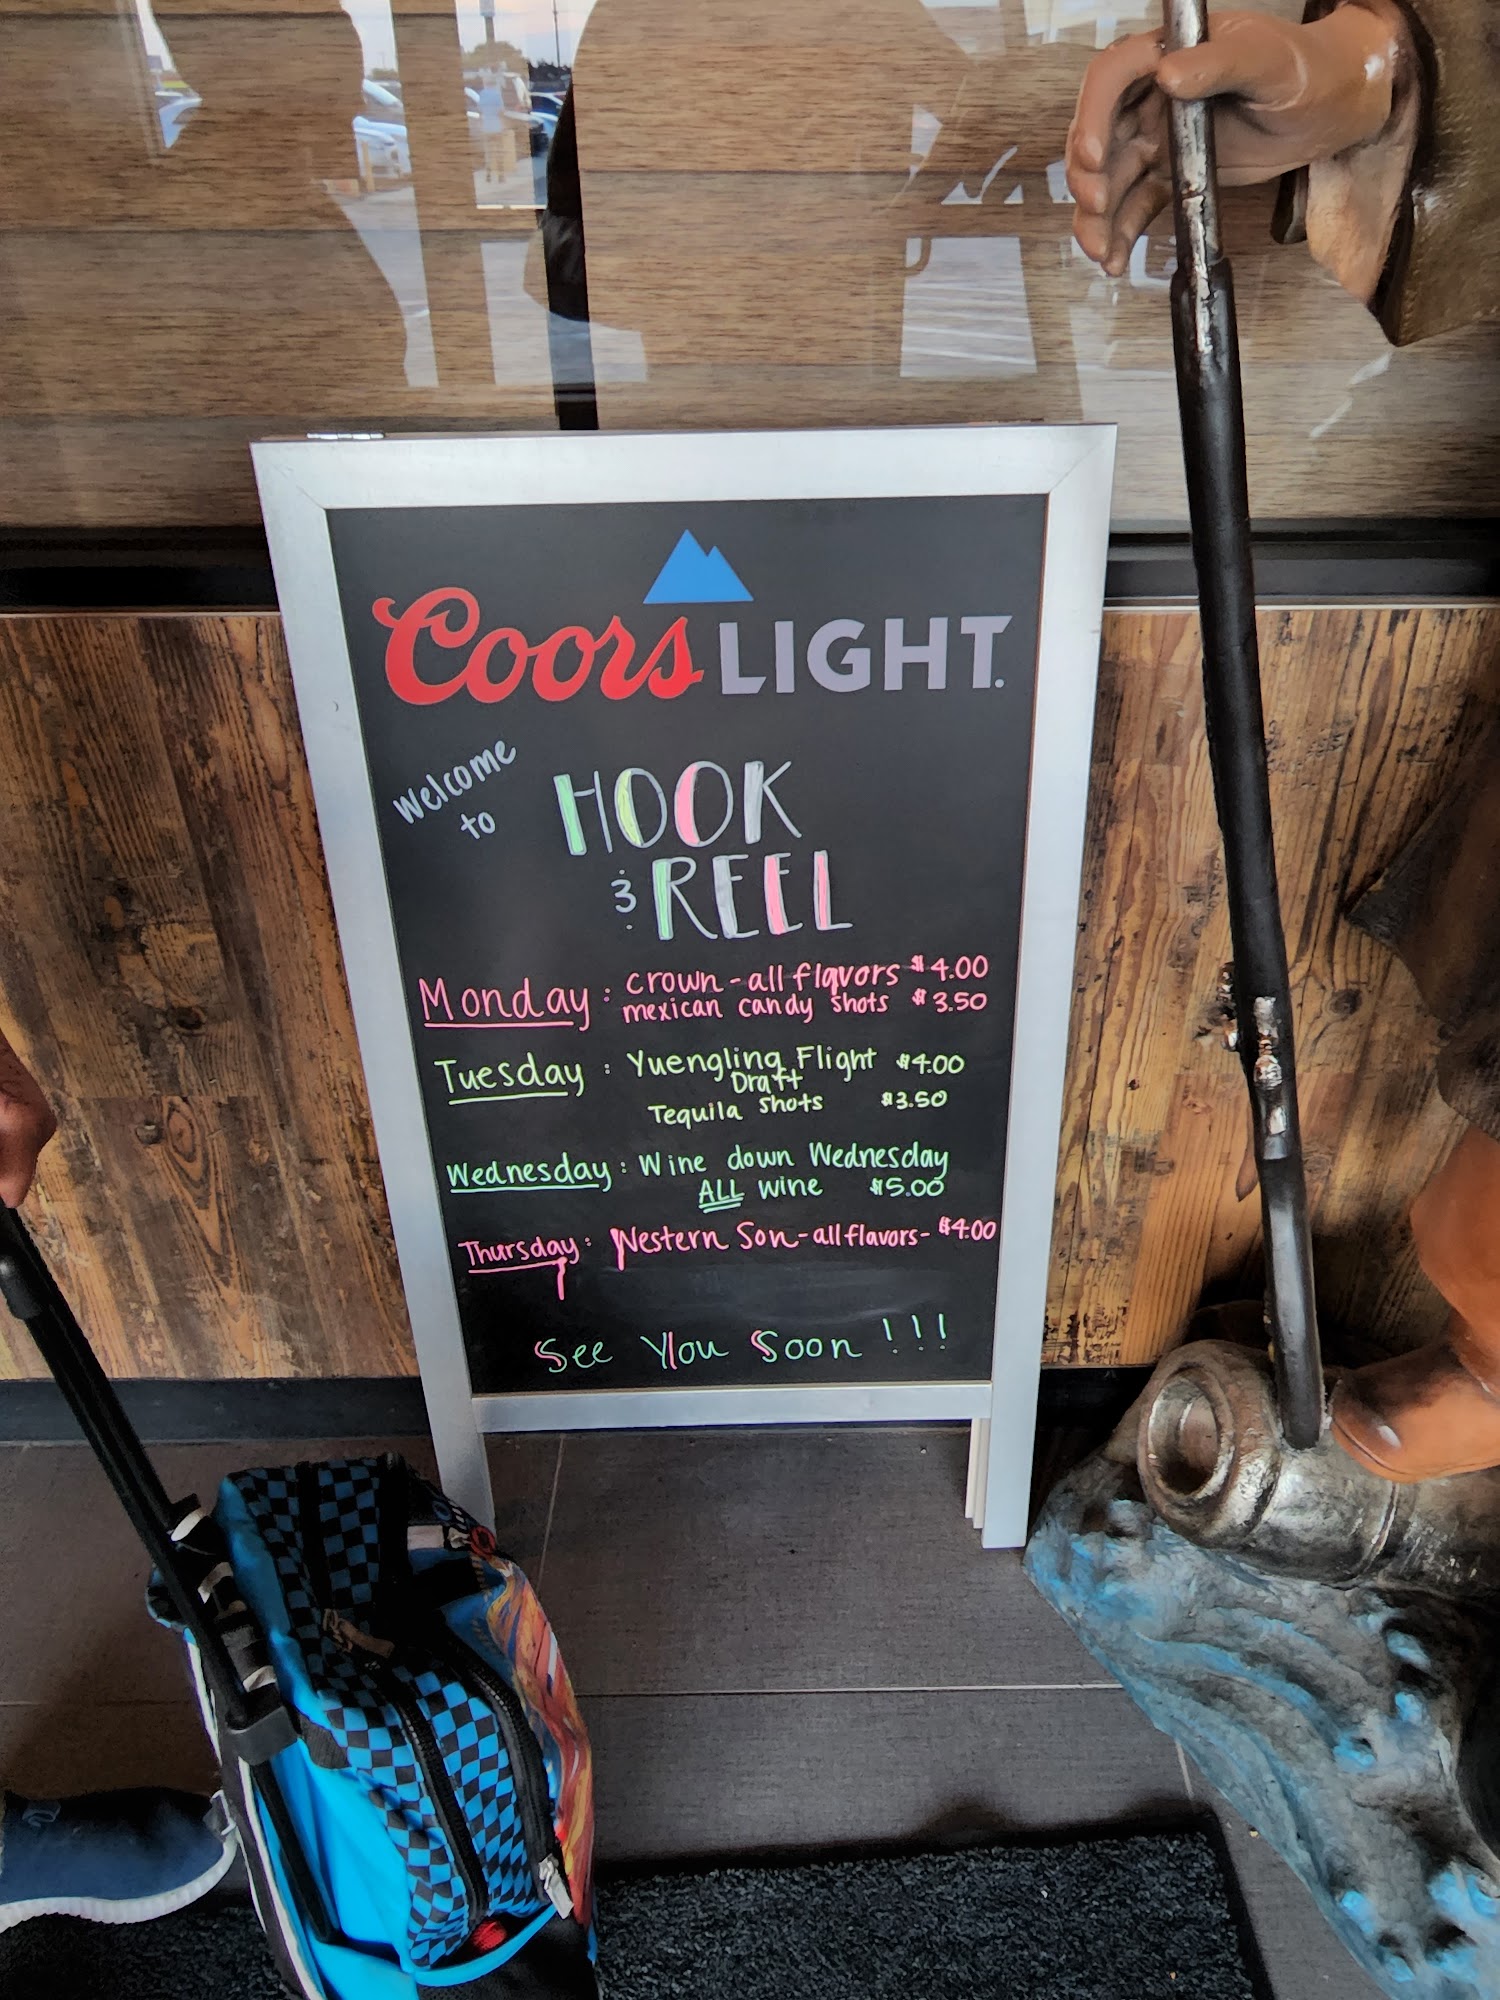 Coors LIGHT.
Welcome
to
HOOK
& REEL
Monday: crown-all flavors $4.00
mexican candy shots $3.50
Tuesday: Yuengling Flight $4.00
Draft
Tequila Shots $3.50
Wednesday: Wine down Wednesday
ALL wine $5.00
Thursday: Western Son-all flavors- $4.00
See You Soon !!!